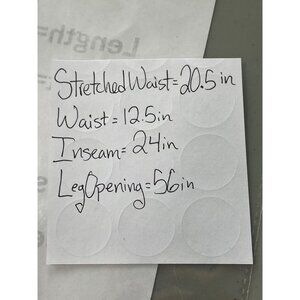 Length=
Stretched Waist=20.5in
Waist=12.5in
Inseam=24in
Leg Opening=56in